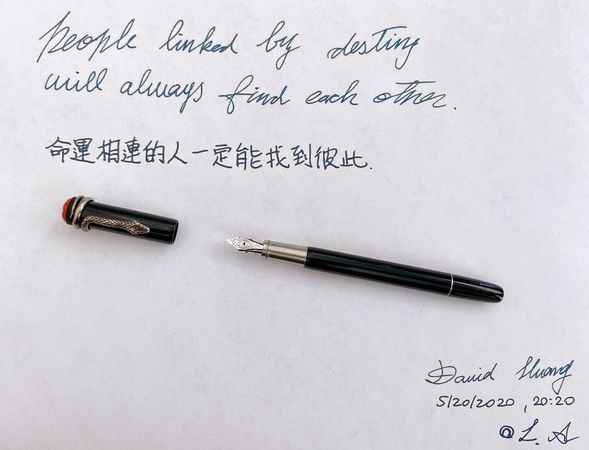 people linked by destiny
will always find each other.
命運相連的人一定能找到彼此.
David Huang
5/20/2020, 20:20
@L.A